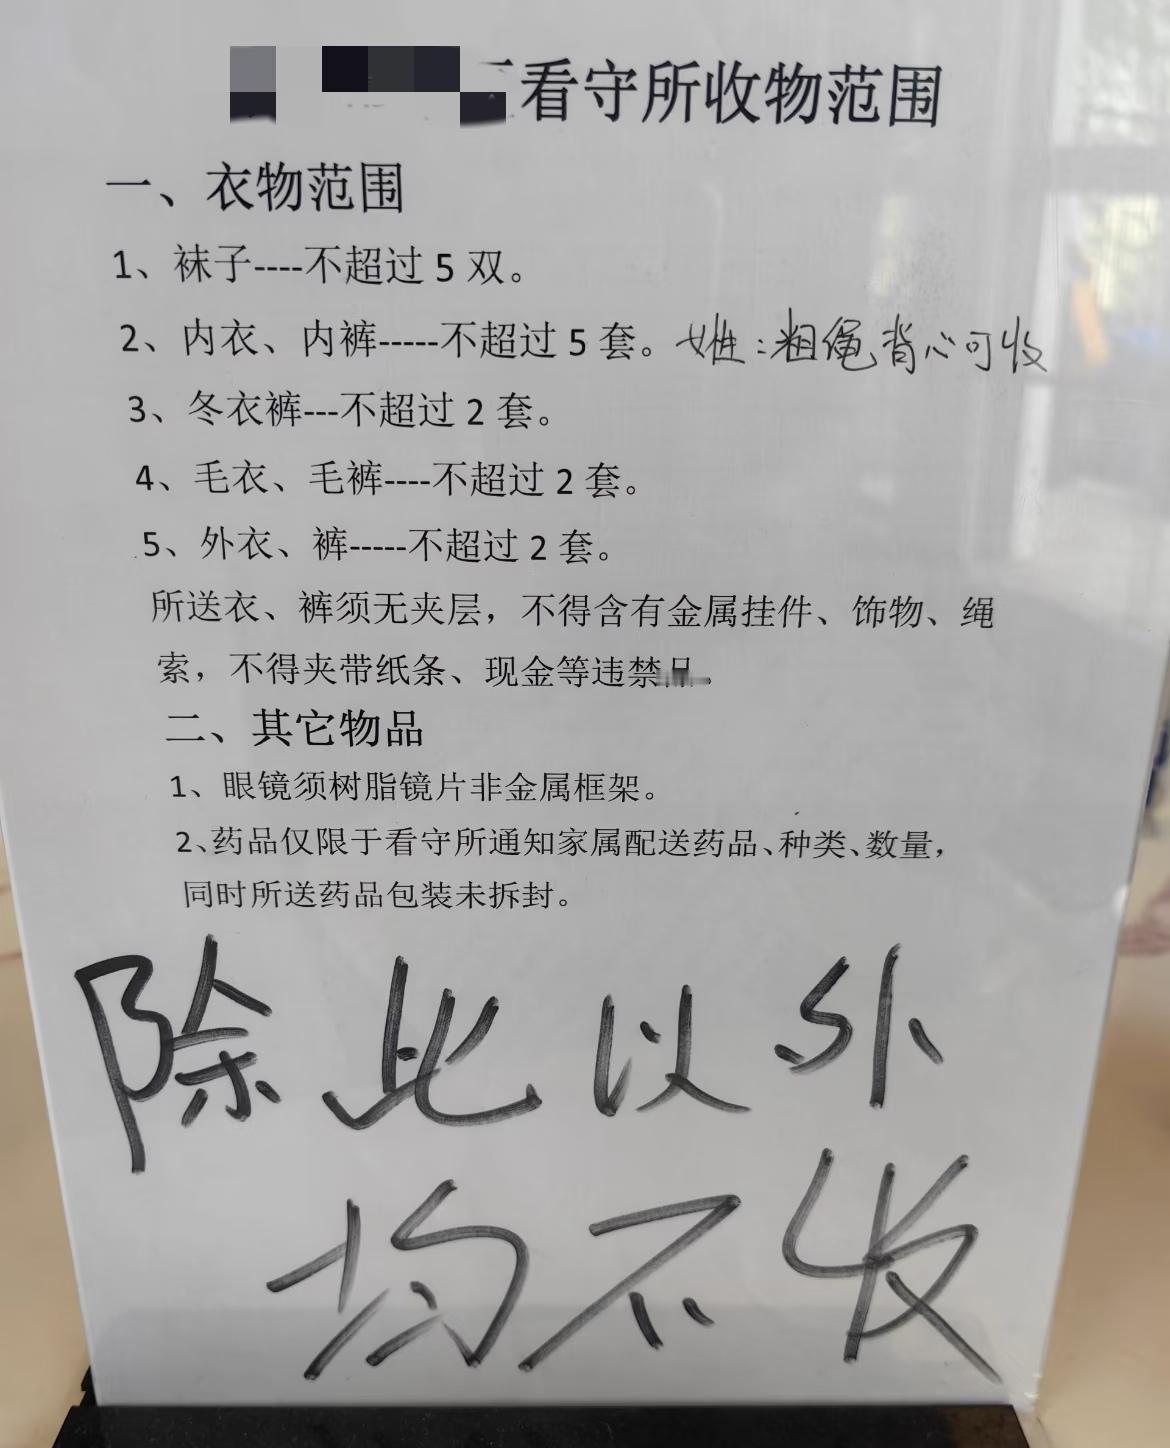 看守所收物范围
一、衣物范围
1、袜子----不超过 5 双。
2、内衣、内裤-----不超过 5 套。女性：粗绳背心可收
3、冬衣裤---不超过 2 套。
4、毛衣、毛裤----不超过 2 套。
5、外衣、裤-----不超过 2 套。
所送衣、裤须无夹层，不得含有金属挂件、饰物、绳
索，不得夹带纸条、现金等违禁品。
二、其它物品
1、眼镜须树脂镜片非金属框架。
2、药品仅限于看守所通知家属配送药品、种类、数量，
同时所送药品包装未拆封。
除此以外
均不收